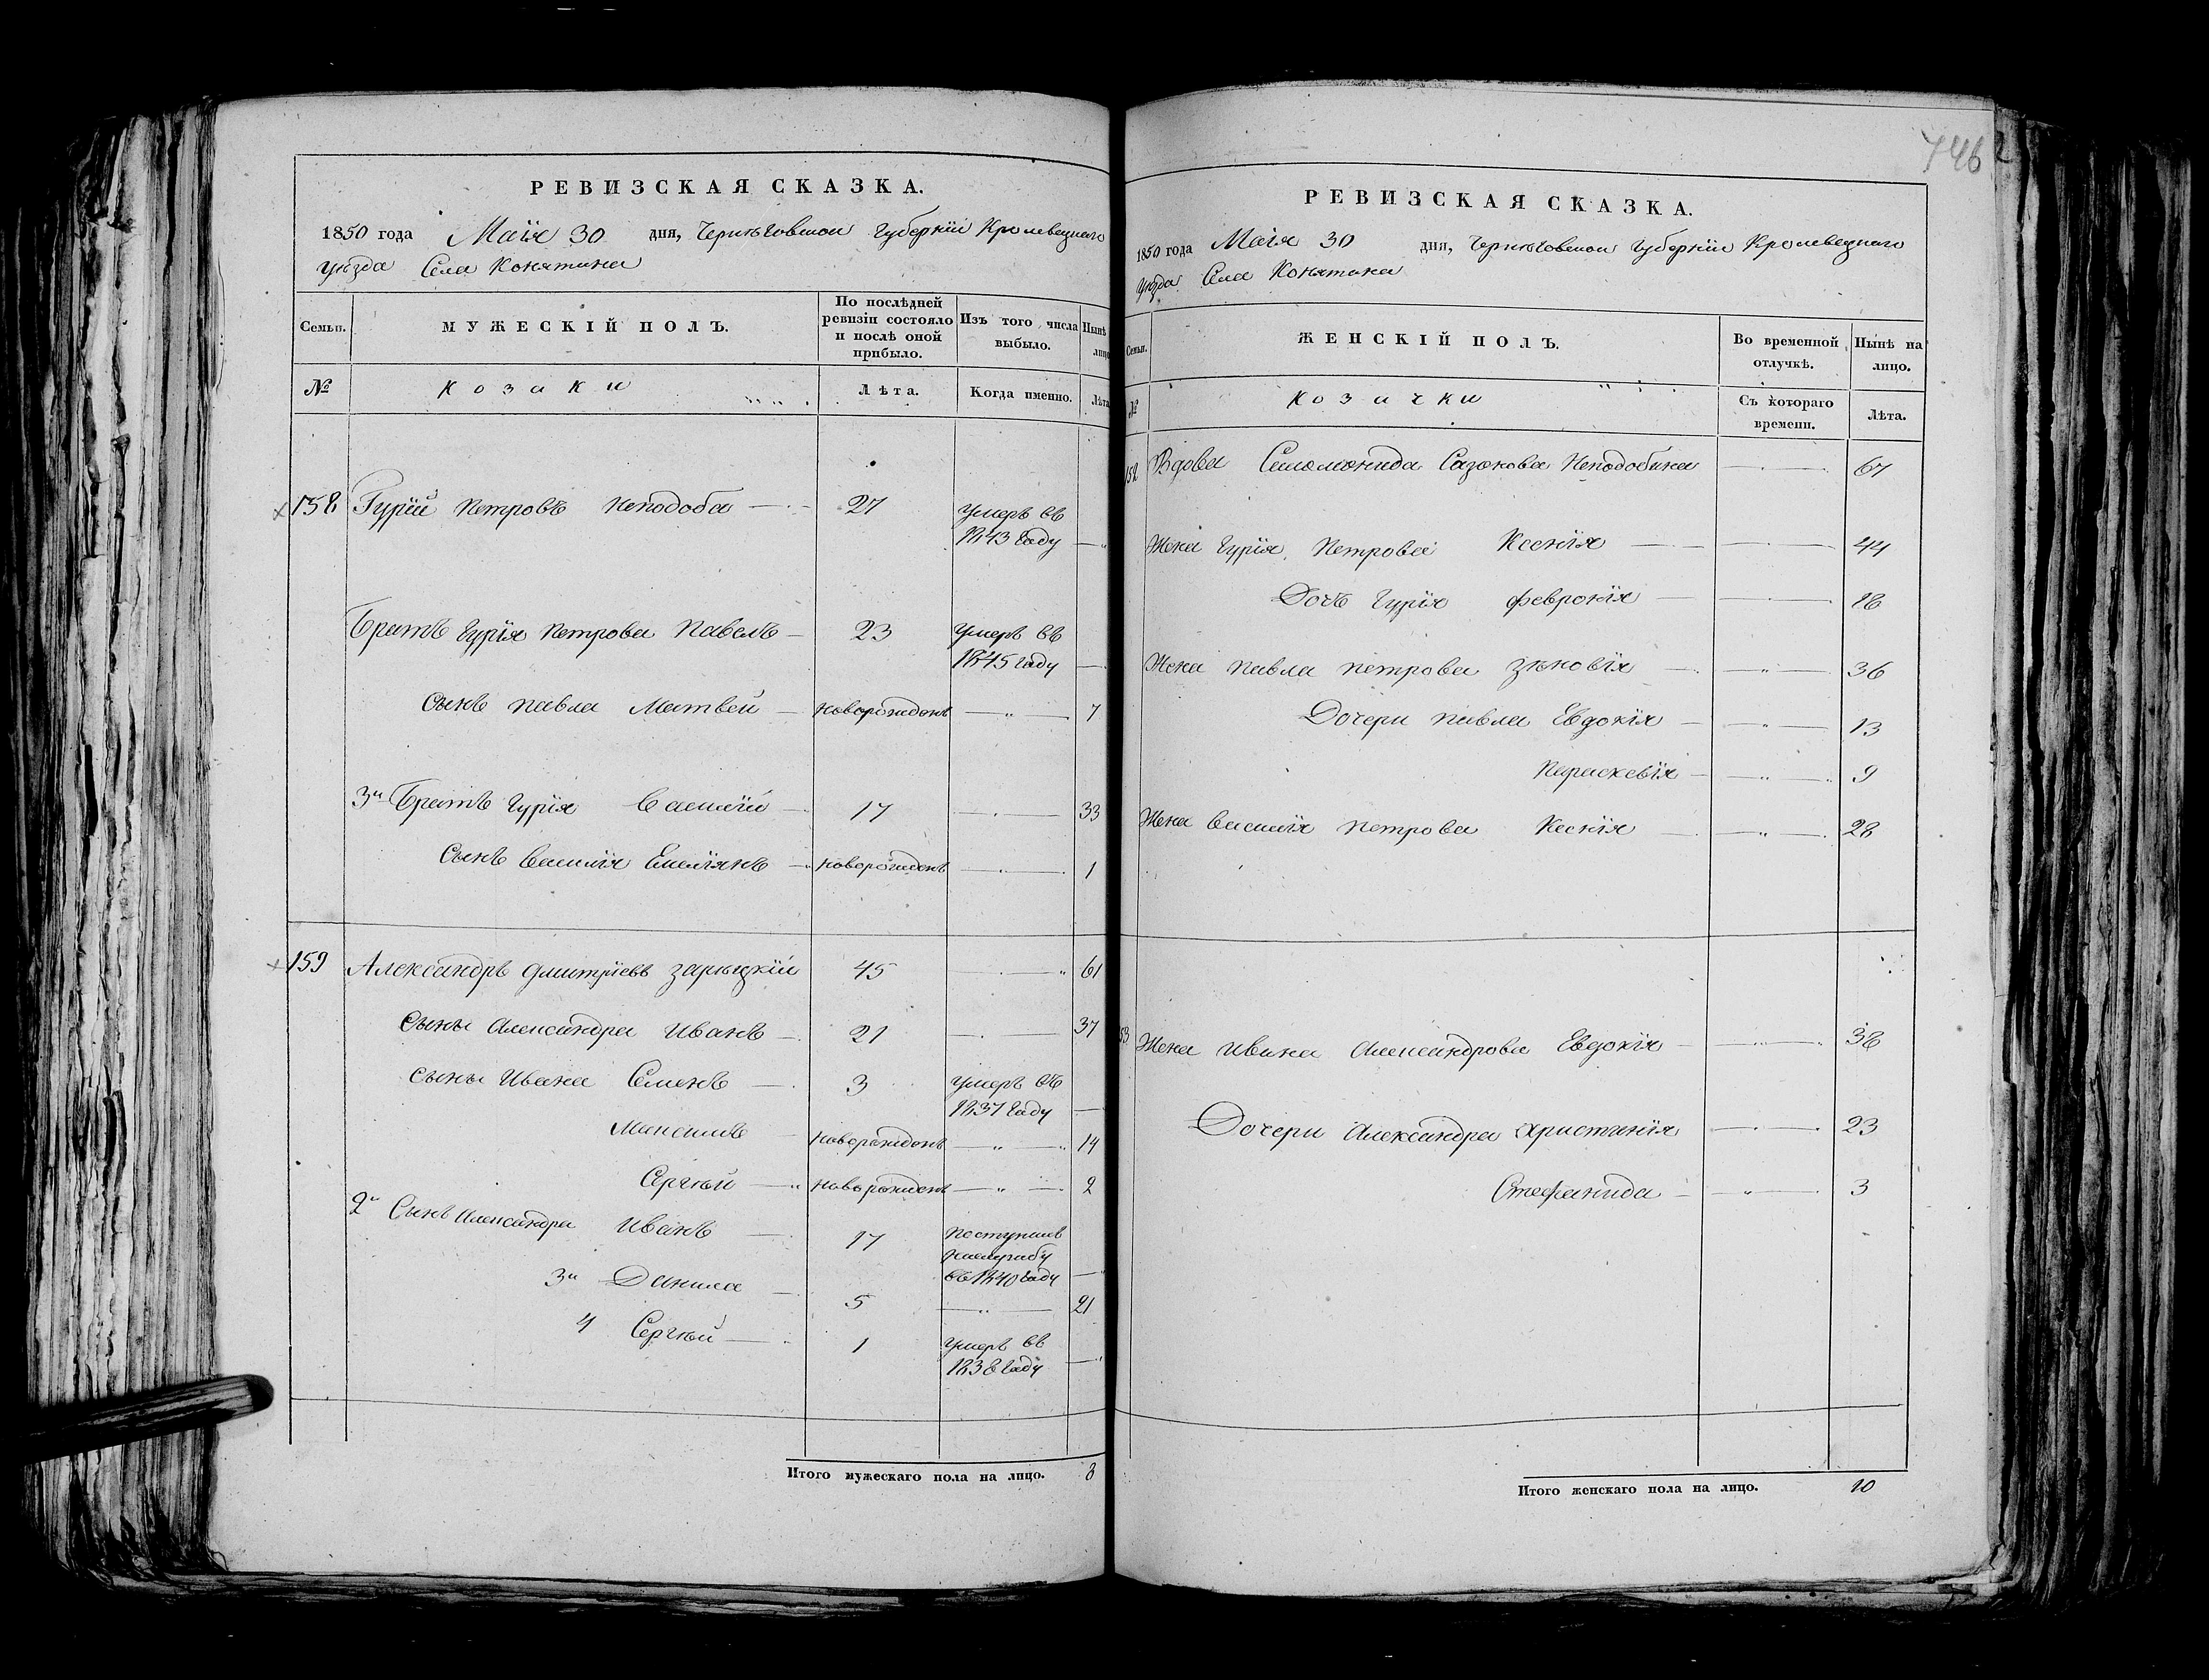 РЕВИЗСКАЯ СКАЗКА.
1850 года Маія 30 дня, Черниговской Губерніи Кролевецкаго
уѣзда Села Конятина
Семьи. МУЖЕСКІЙ ПОЛЪ. По послѣдней ревизіи состояло и послѣ оной прибыло. Изъ того числа выбыло. Нынѣ лицо
№ козаки Лѣта. Когда именно. Лѣта
158 Гурій Петровъ Неподоба 27 умеръ въ
1843 году
Братъ Гурія Петрова Павелъ 23 умеръ въ
1845 году
сынъ Павла Матвей новорожденъ 7
3й Братъ Гурія Василій 17 33
Сынъ Василія Емеліянъ новорожденъ 1
159 Александръ Дмитріевъ Зарыцкій 45 61
Сыны Александра Иванъ 21 37
сыны Ивана Семенъ 3 умеръ въ
1837 году
Максимъ новорожденъ 14
Сергѣй новорожденъ 2
2й Сынъ Александра Иванъ 17 поступилъ
въ 1840 году
3й Данила 5 21
4 Сергѣй 1 умеръ въ
1838 году
Итого мужескаго пола на лицо. 8
746
РЕВИЗСКАЯ СКАЗКА.
1850 года Маія 30 дня, Черниговской Губерніи Кролевецкаго
уѣзда Села Конятина
Семьи. ЖЕНСКІЙ ПОЛЪ. Во временной отлучкѣ. Нынѣ на лицо.
№ козачки Съ котораго времени. Лѣта.
Вдова Соломонида Сазонова Неподобина 67
Жена Гурія Петрова Ксенія 44
Дочь Гурія Февронія 18
Жена Павла Петрова Зѣновія 36
Дочери Павла Евдокія 13
Параскевія 9
Жена Василія Петрова Ксенія 28
Жена Ивана Александрова Евдокія 38
Дочери Александра Христинія 23
Стефанида 3
Итого женскаго пола на лицо. 10